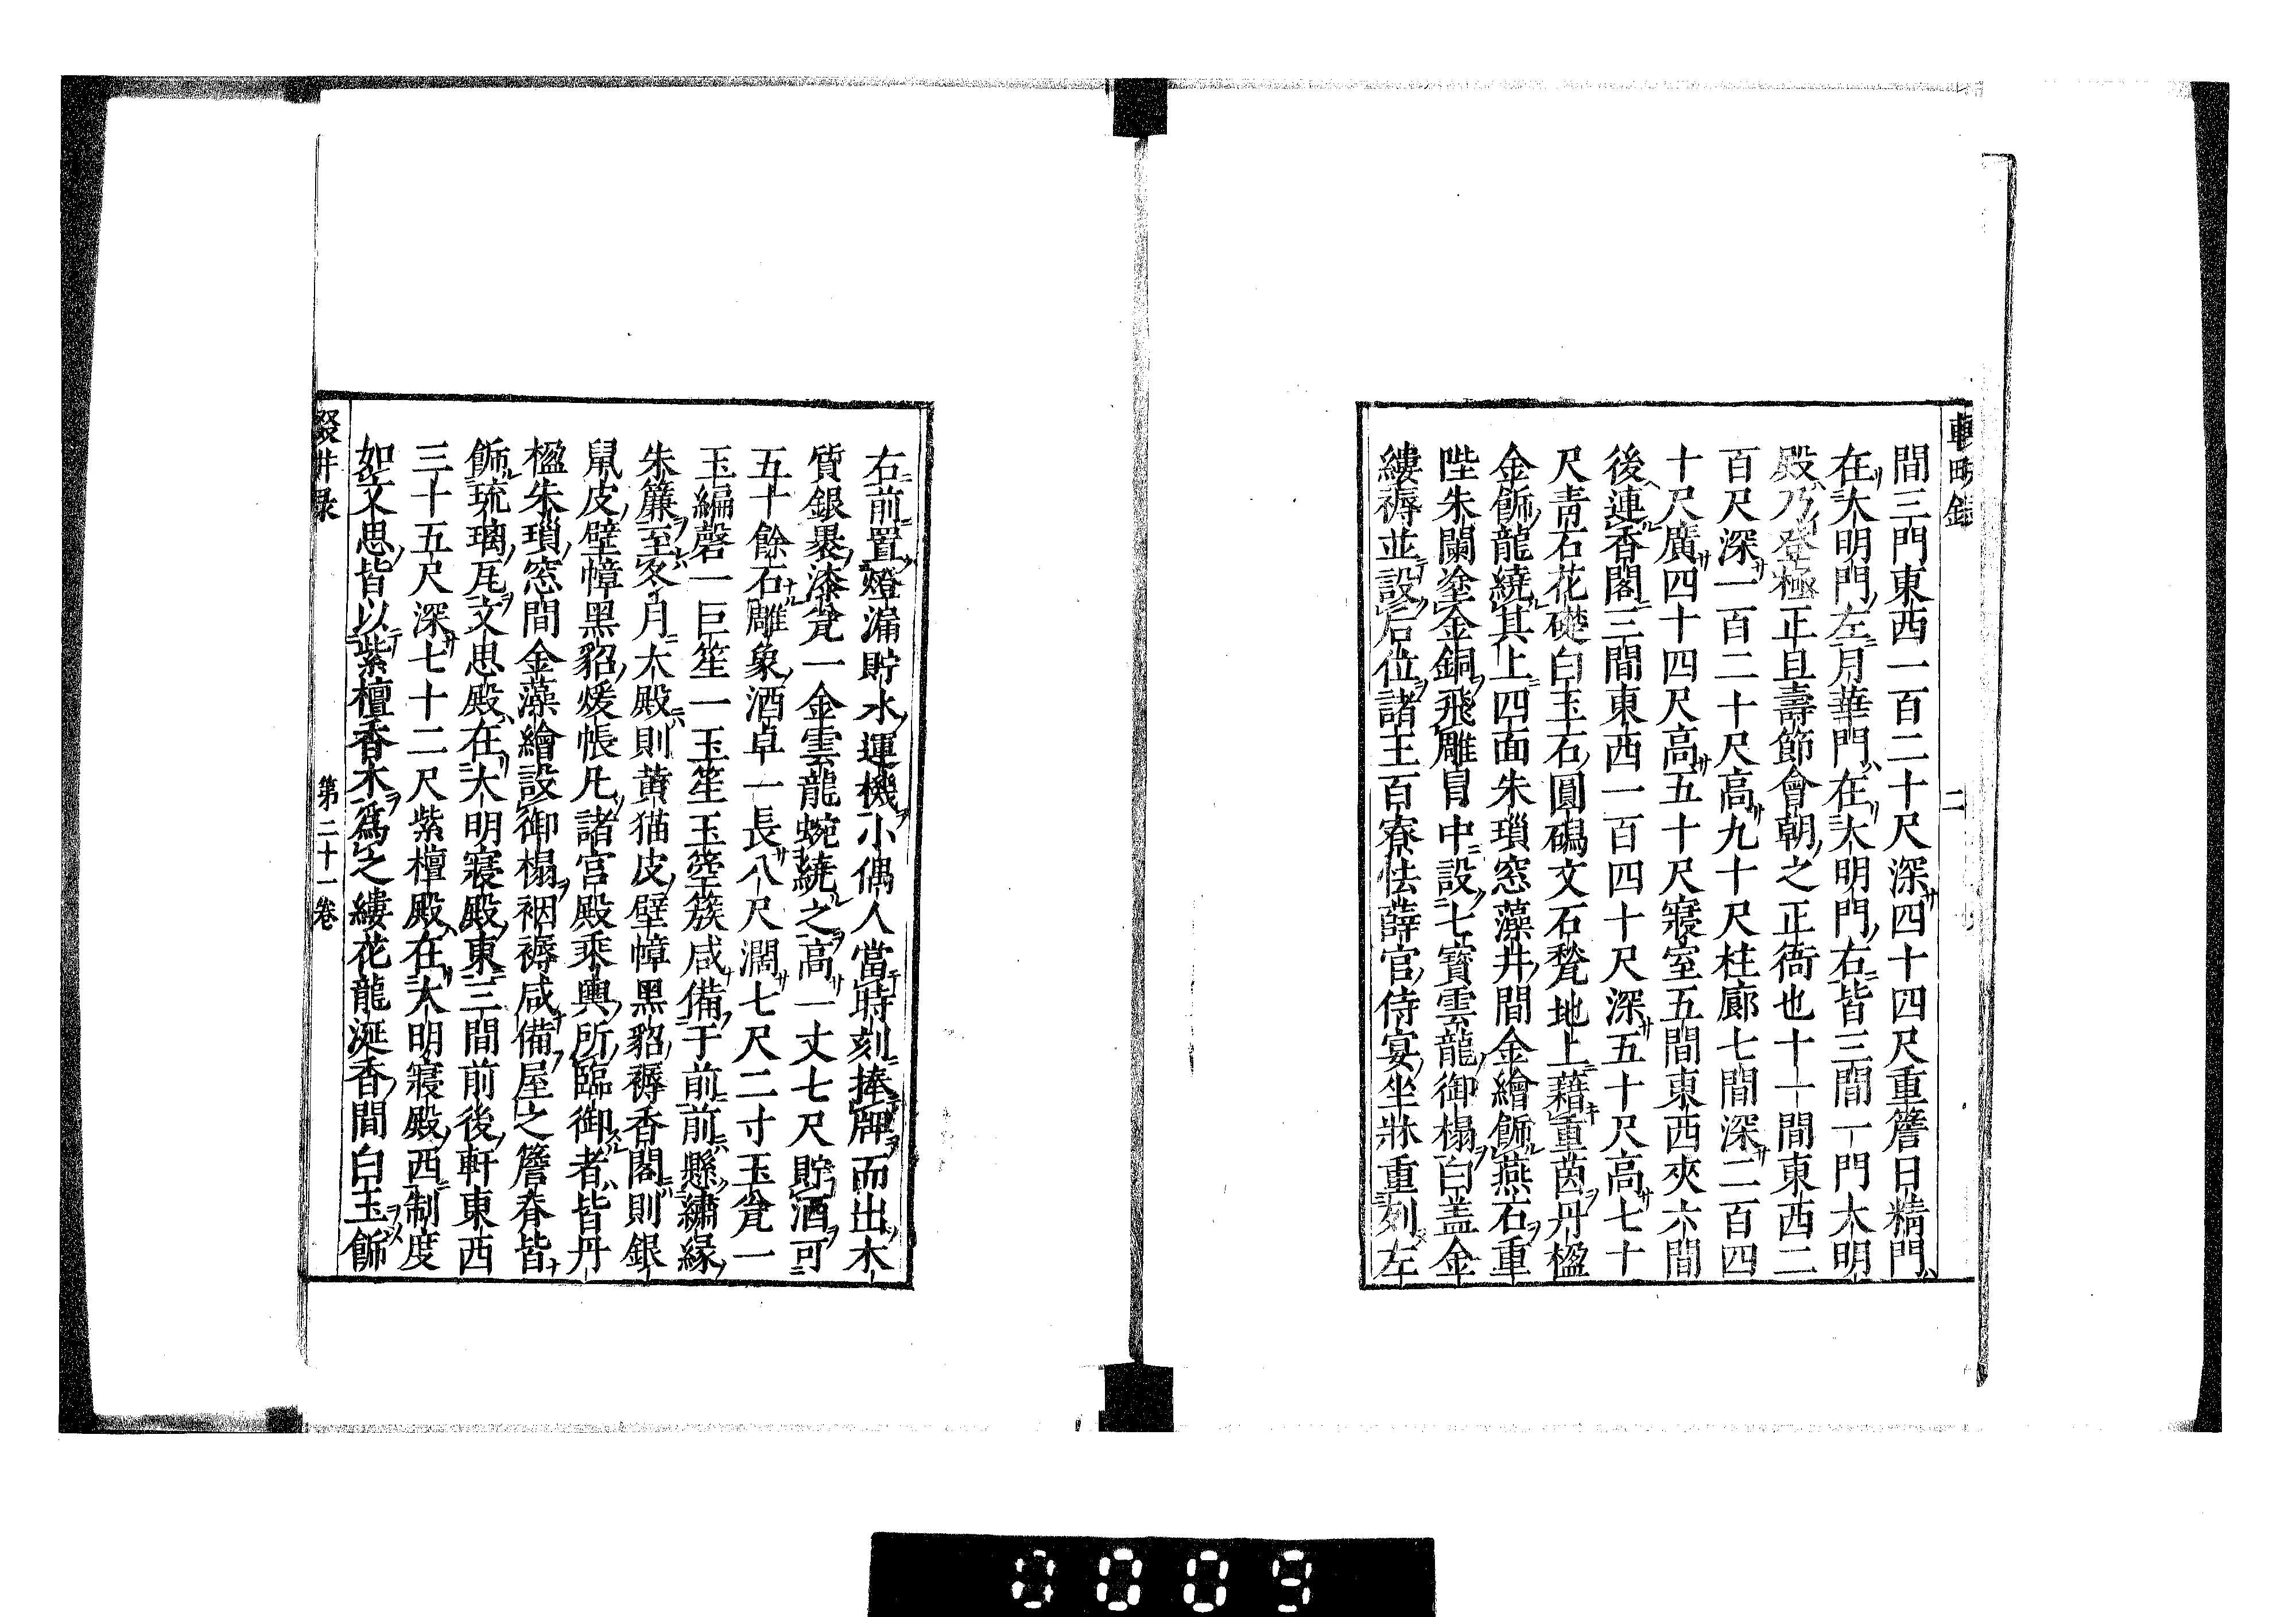 間三門東西一百二十尺深四十四尺重簷日精門
在大明門左月華門在大明門右皆三間一門大明
殿乃登極正旦壽節會朝之正衙也十一間東西二
百尺深一百二十尺高九十尺柱廊七間深二百四
十尺廣四十四尺高五十尺寢室五間東西夾六間
後連香閣三間東西一百四十尺深五十尺高七十
尺青石花礎白玉石圓碣文石甃地上藉重茵丹楹
金飾龍繞其上四面朱瑣窓藻井間金繪飾燕石重
陛朱闌塗金銅飛雕冐中設七寶雲龍御榻白盖金
縷褥並設后位諸王百寮怯薛官侍宴坐牀重列左
右前置燈漏貯水運機小偶人當時刻捧牌而出木
質銀裹漆瓮一金雲龍蜿繞之高一丈七尺貯酒可
五十餘石雕象酒卓一長八尺濶七尺二寸玉瓮一
玉編磬一巨笙一玉笙玉箜篌咸備于前前懸繡緣
朱簾至冬月大殿則黄猫皮壁幛黑貂褥香閣則銀
鼠皮壁幛黑貂煖帳凡諸宮殿乘輿所臨御者皆丹
楹朱瑣窓間金藻繪設御榻裀褥咸備屋之簷脊皆
飾琉璃瓦文思殿在大明寢殿東三間前後軒東西
三十五尺深七十二尺紫檀殿在大明寢殿西制度
如文思皆以紫檀香木爲之縷花龍涎香間白玉飾
第二十一卷
0009